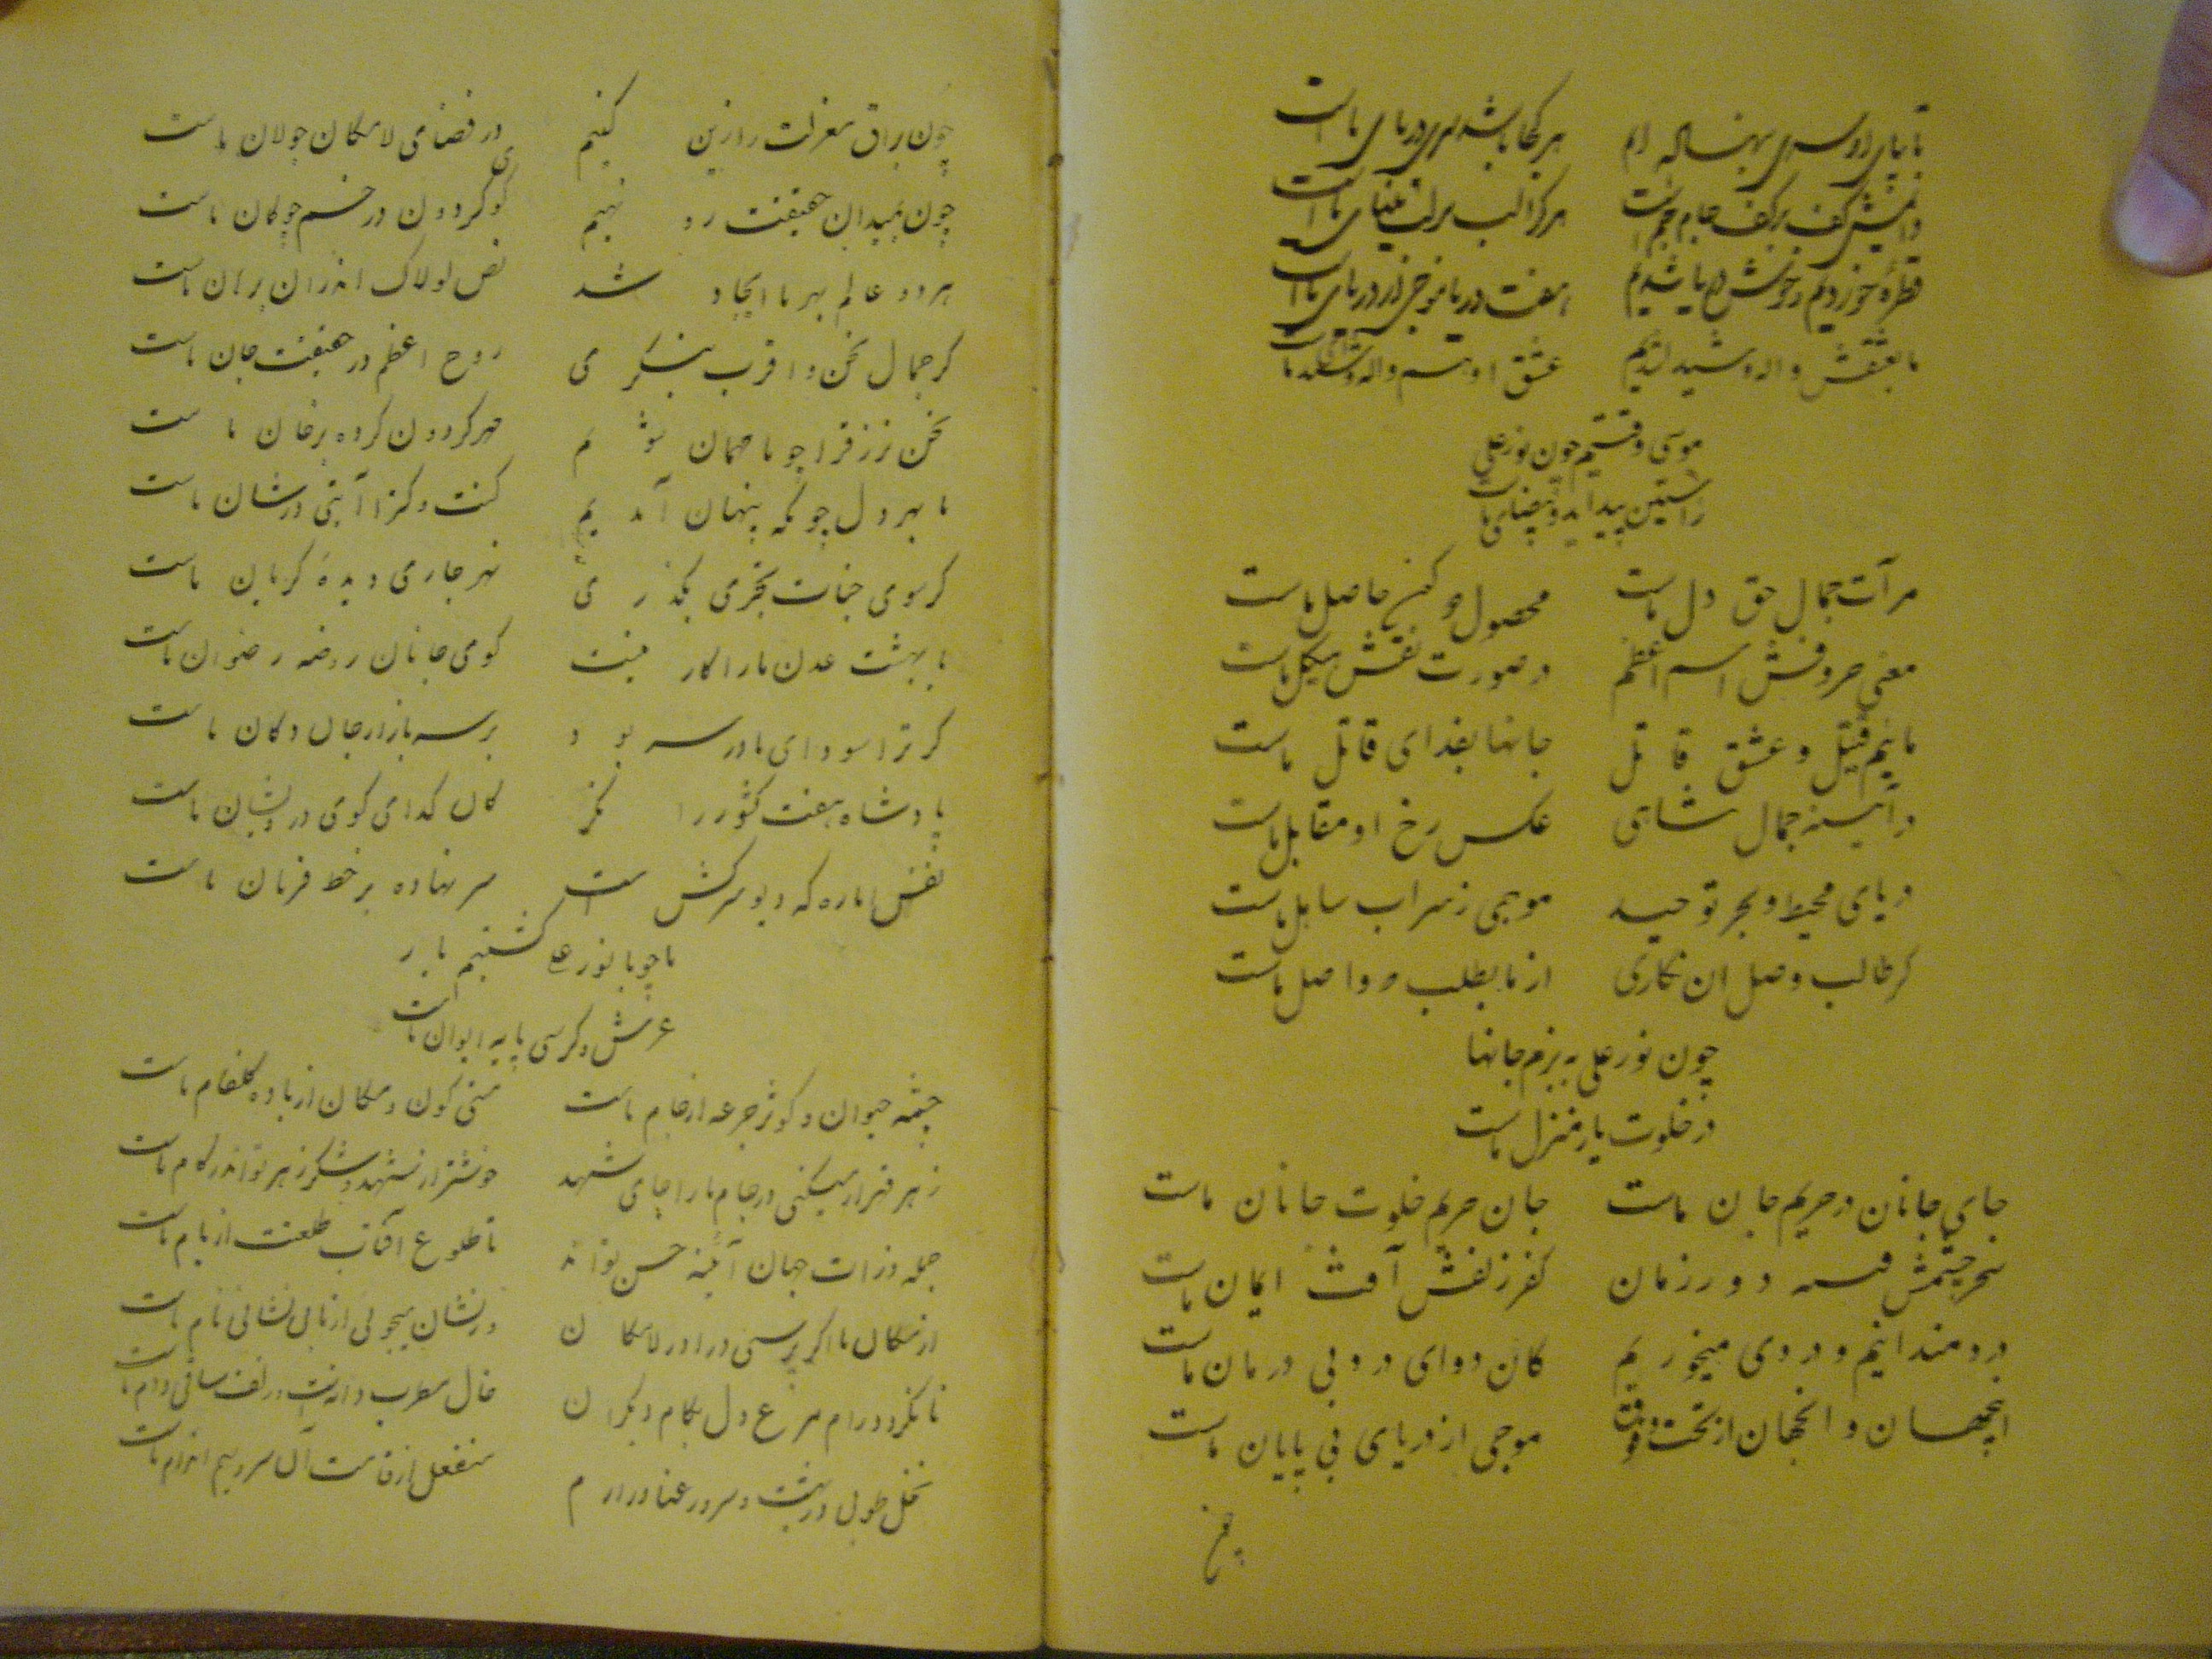 تا بپای او سر بنهاده ایم هر کجا باشد سری در پای ماست
قطره خوردیم و خوش دریا شدیم هفت دریا موجی از دریای ماست
ما بعشقش واله و شیدا شدیم عشق او هم واله و شیدای ما
موسی وقتیم چون نورعلی
زاستین پیدا ید و بیضای ما
مرآت جمال حق دل ماست محصول دو کون حاصل ماست
معنی حروفش اسم اعظم در صورت نقش هیکل ماست
مائیم قتیل و عشق قاتل جانها بفدای قاتل ماست
در آینه جمال شاهی عکس رخ او مقابل ماست
دریای محیط و بحر توحید موجی ز سراب ساحل ماست
گر طالب وصل ان نگاری از ما بطلب که واصل ماست
چون نورعلی به بزم جانها
در خلوت یار منزل ماست
جای جانان در حریم جان ماست جان حریم خلوت جانان ماست
سحر چشمش فتنه دور زمان کفر زلفش آفت ایمان ماست
دردمندانیم و دردی میخوریم کان دوای درد بی درمان ماست
اینجهان و انجهان از تحت و فوق موجی از دریای بی پایان ماست
چون براق معرفت را زین کنیم در فضای لامکان جولان ماست
چون بمیدان حقیقت رو نهیم گوی گردون در خم چوگان ماست
هر دو عالم بهر ما ایجاد شد نص لولاک اندران برهان ماست
گر جمال نحن و اقرب بنگری روح اعظم در حقیقت جان ماست
نحن نرزق را چو ما مهمان شویم مهر گردون گرده بر خان ماست
ما بهر دل چونکه پنهان آمدیم کنت و کنزا آیتی در شان ماست
گر سوی جنات تجری بگذری نهر جاری دیدهٔ گریان ماست
با بهشت عدن ما را کار نیست کوی جانان روضه رضوان ماست
گر ترا سودای ما در سر بود بر سر بازار جان دکان ماست
پادشاه هفت کشور را نگر کان گدای کوی درویشان ماست
نفس اماره که دیو سرکش است سر نهاده بر خط فرمان ماست
ما چو با نورعلی گشتیم یار
عرش و کرسی پایه ایوان ماست
چشمه حیوان و کوثر جرعه از جام ماست مستی کون و مکان از باده گلفام ماست
زهر قهر ار میکنی در جام ما را جای شهد خوشتر از شهد و شکر زهر تو اندر کام ماست
جمله ذرات جهان آئینه حسن تواند تا طلوع آفتاب طلعتت از بام ماست
از مکان ما اگر پرسی درا در لامکان ور نشان میجوئی از ما بی نشانی نام ماست
تا نگردد رام مرغ دل بکام دیگران خال مطرب دانه است و زلف ساقی دام ماست
نخل طوبی در بهشت و سرو رعنا در ارم منفعل از قامت آن سرو سیم اندام ماست